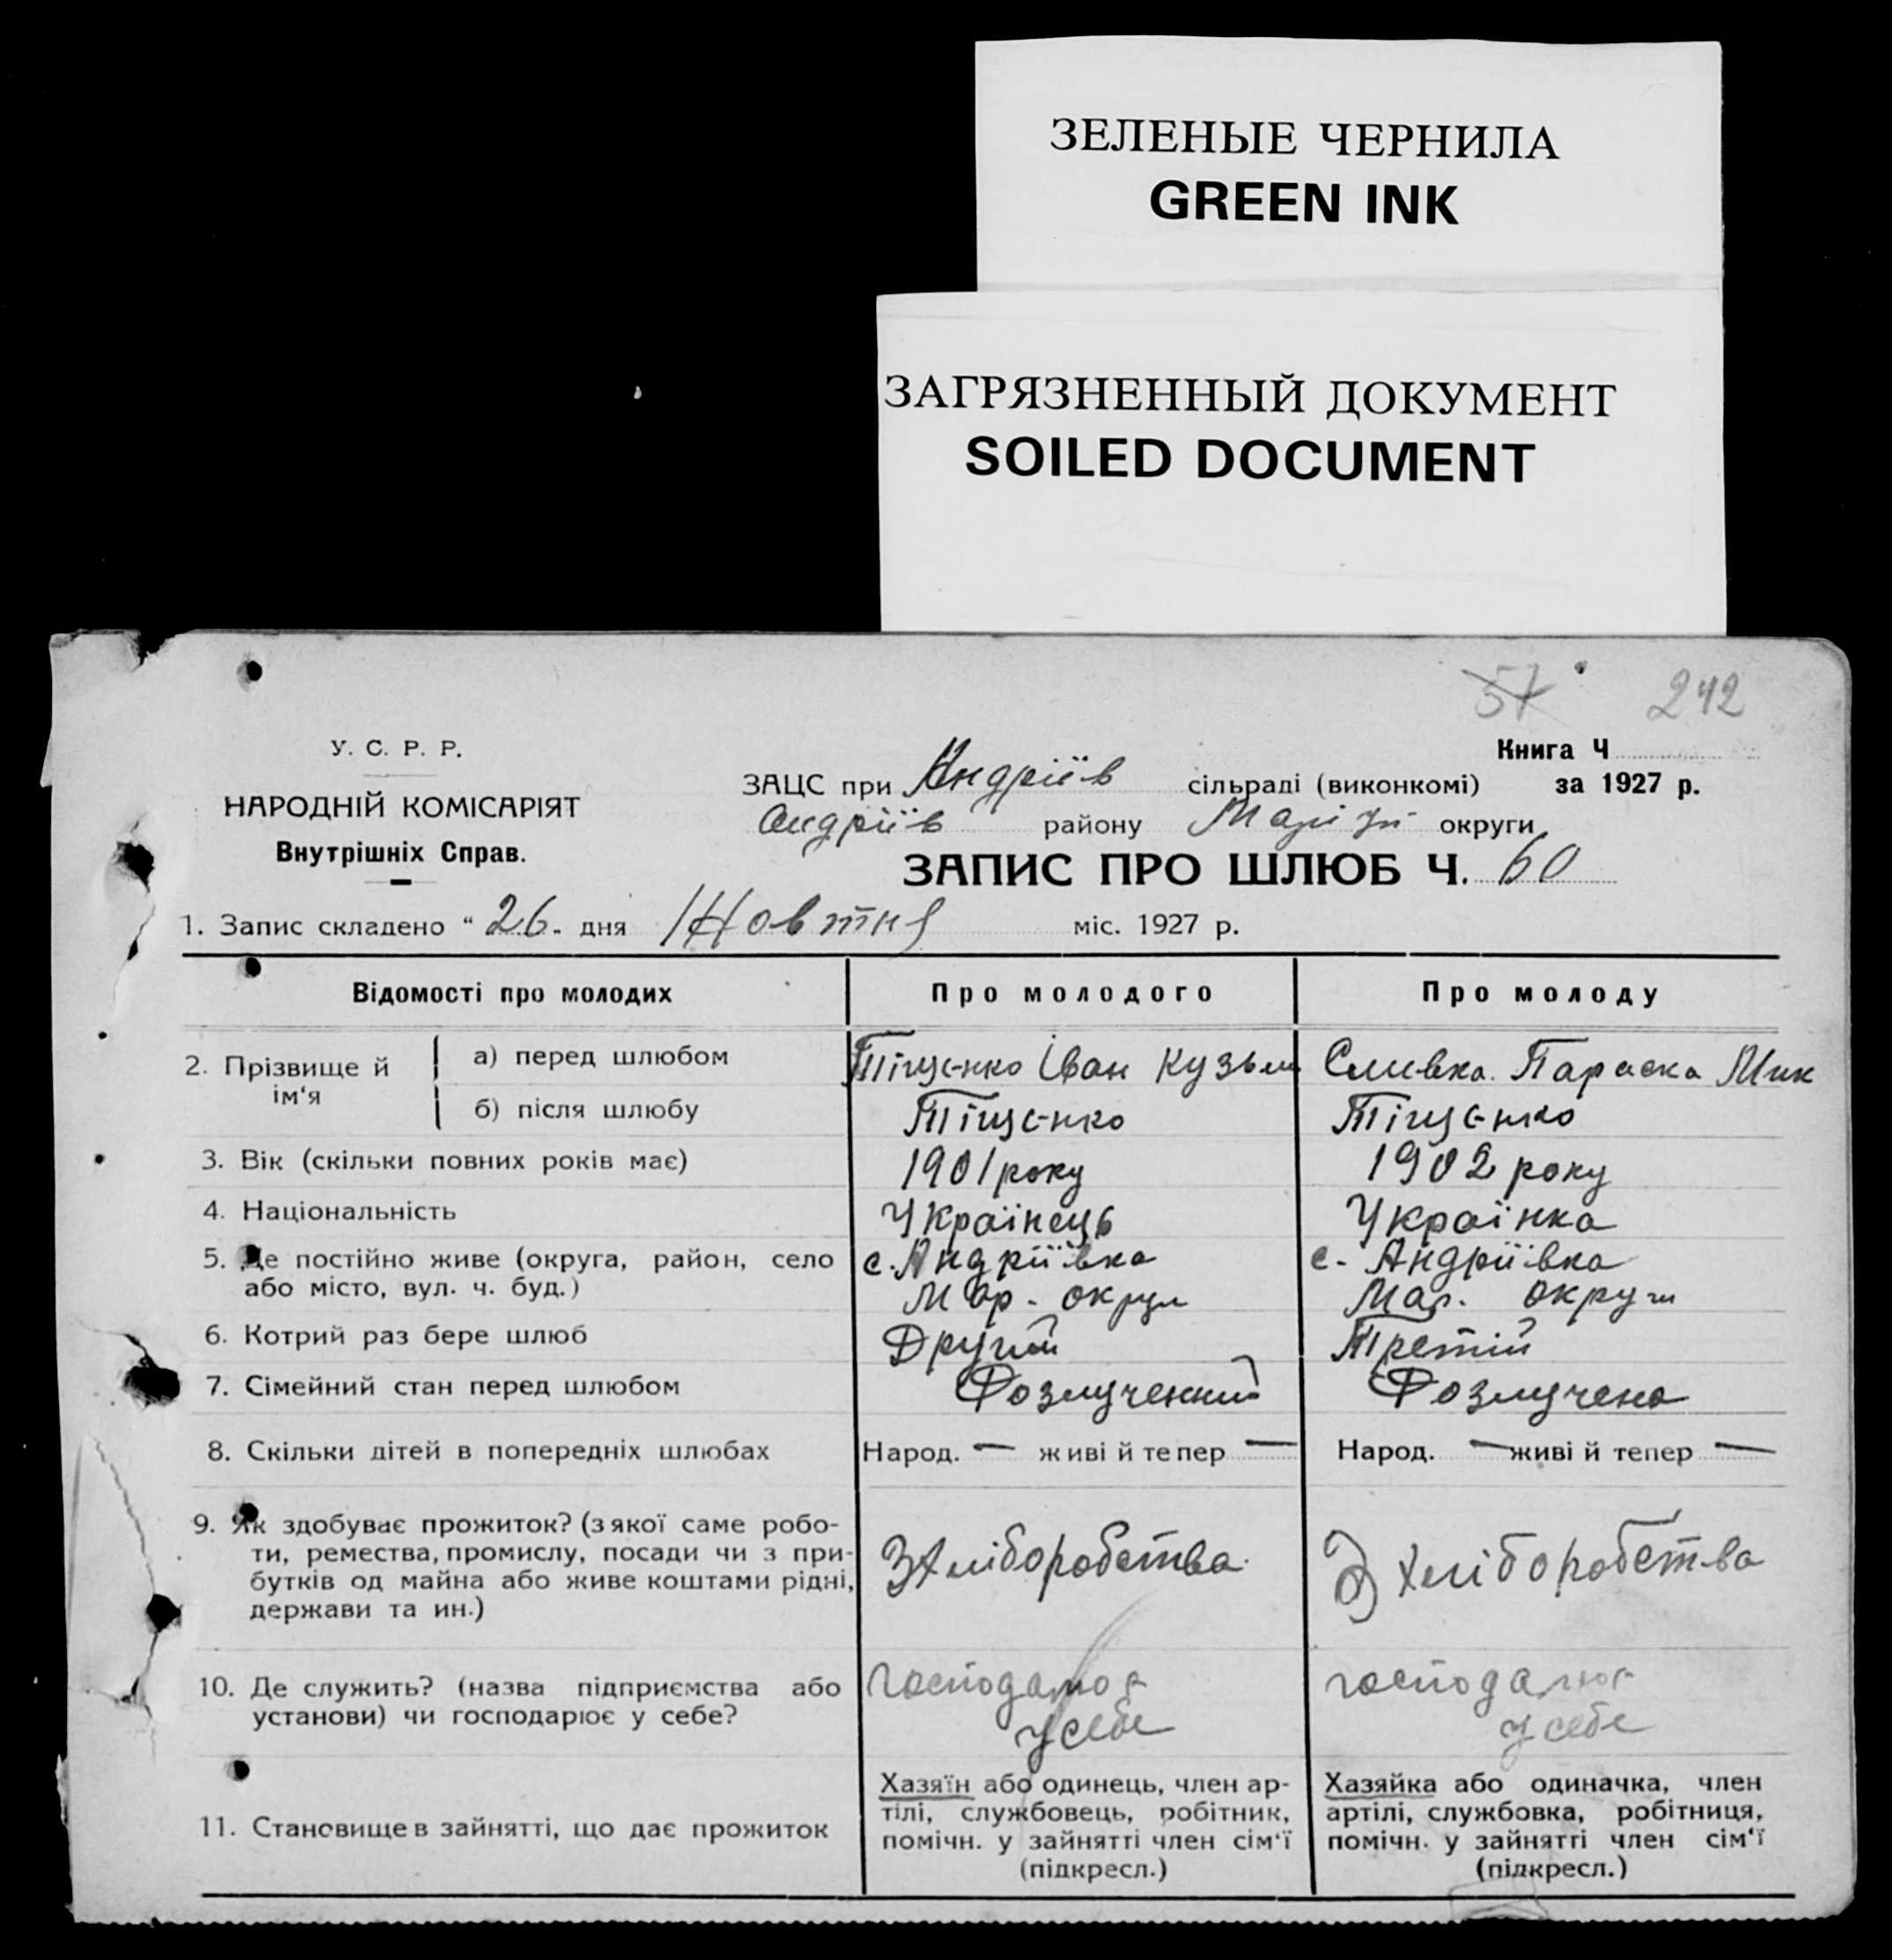 ЗЕЛЕНЫЕ ЧЕРНИЛА
GREEN INK
ЗАГРЯЗНЕННЫЙ ДОКУМЕНТ
SOILED DOCUMENT
57 242
У. С. Р. Р.
НАРОДНІЙ КОМІСАРІЯТ
Внутрішніх Справ.
Книга Ч
ЗАЦС при Андріїв сільраді (виконкомі) за 1927 р.
Андріїв району Маріуп округи
ЗАПИС ПРО ШЛЮБ Ч. 60
1. Запис складено " 26. дня Жовтня міс. 1927 р.
Відомості про молодих Про молодого Про молоду
2. Прізвище й ім'я
а) перед шлюбом Тіщенко Іван Кузьм Сливка Параска Мик
б) після шлюбу Тіщенко Тіщенко
3. Вік (скільки повних років має) 1901 року 1902 року
4. Національність Українець Українка
5. Де постійно живе (округа, район, село с. Андріївка с. Андріївка
або місто, вул. ч. буд.) Мар. округи Мар. округи
6. Котрий раз бере шлюб Другий Третій
7. Сімейний стан перед шлюбом Розлучений Розлучена
8. Скільки дітей в попередніх шлюбах Народ. — живі й тепер — Народ. — живі й тепер —
9. Як здобуває прожиток? (з якої саме робо-
ти, ремества, промислу, посади чи з при- З хліборобства З хліборобства
бутків од майна або живе коштами рідні,
держави та ин.)
10. Де служить? (назва підприємства або господарює господарює
установи) чи господарює у себе? у себе у себе
11. Становище в зайнятті, що дає прожиток
Хазяїн або одинець, член ар-
тілі, службовець, робітник,
помічн. у зайнятті член сім'ї
(підкресл.)
Хазяйка або одиначка, член
артілі, службовка, робітниця,
помічн. у зайнятті член сім'ї
(підкресл.)